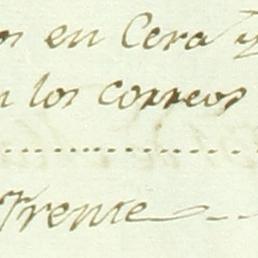 os en Cera y
n los correos
Frente